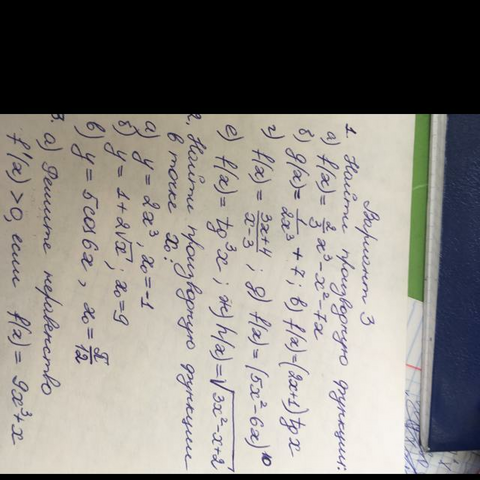 Вариант 3
1. Найти производную функции:
а) f(x) = 2/3 x³ - x² - 7x
б) g(x) = 1/2x³ + 7; в) f(x) = (2x+1) tg x
г) f(x) = 3x+4/x-3; д) f(x) = (5x² - 6x)¹⁰
е) f(x) = tg³ x; ж) h(x) = √3x² - x + 2
2. Найти производную функции
в точке x₀:
а) y = 2x³, x₀ = -1
б) y = 1 + 2√x; x₀ = 9
в) y = 5 cos 6x, x₀ = π/12
3. а) Решите неравенство
f'(x) > 0, если f(x) = 9x³ + x